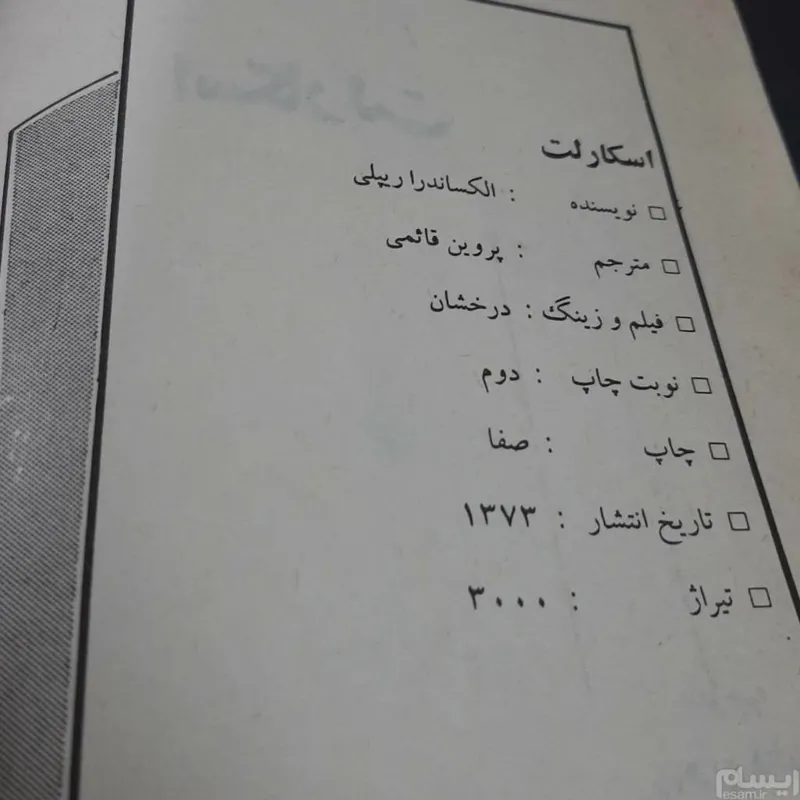 اسکارلت
□ نویسنده : الکساندرا ریپلی
□ مترجم : پروین قائمی
□ فیلم و زینگ : درخشان
□ نوبت چاپ : دوم
□ چاپ : صفا
□ تاریخ انتشار : ۱۳۷۳
□ تیراژ : ۳۰۰۰
ایسام
esam.ir